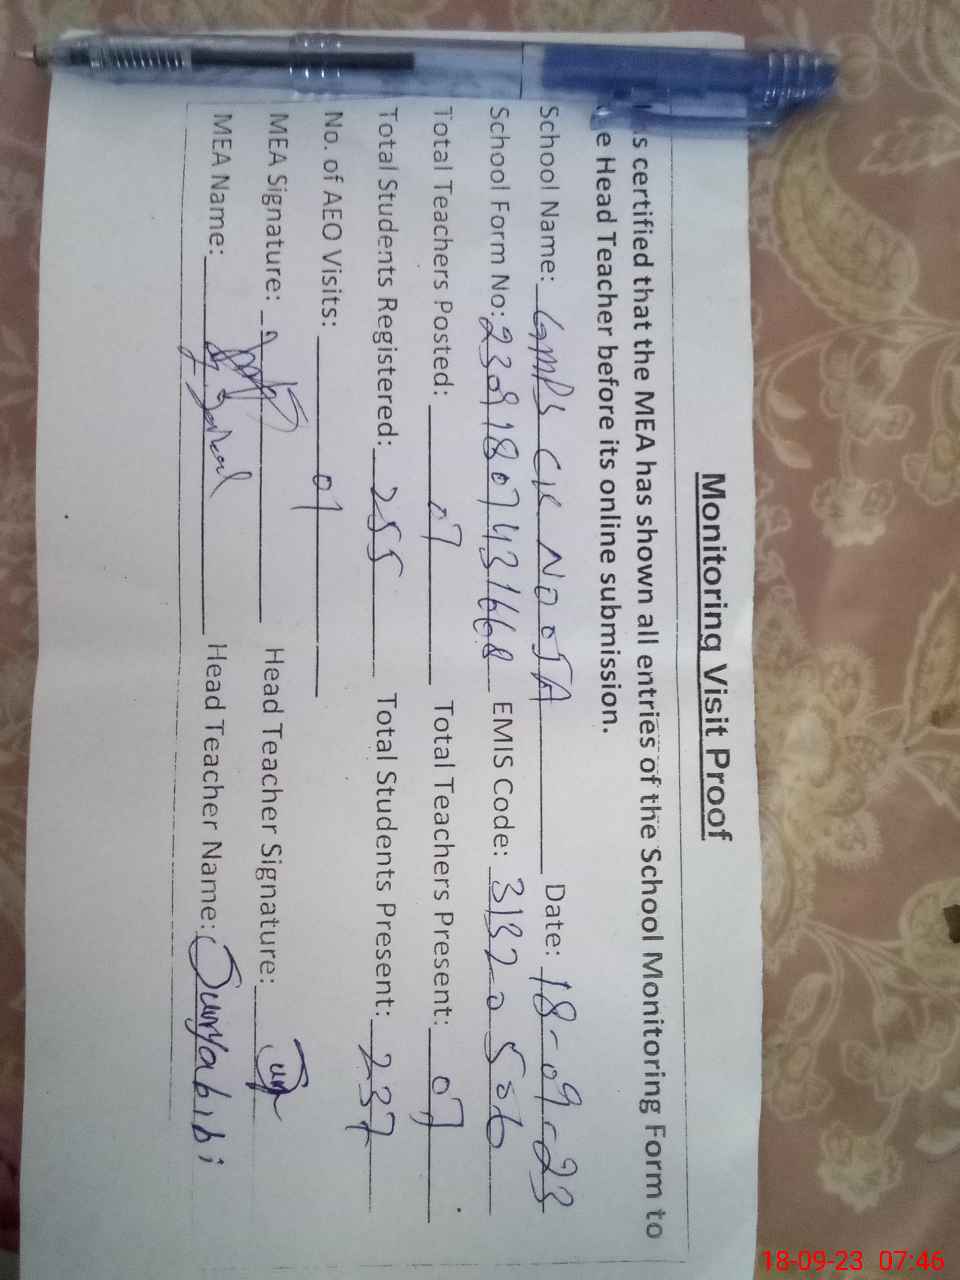 Monitoring Visit Proof
is certified that the MEA has shown all entries of the School Monitoring Form to
e Head Teacher before its online submission.
School Name: GMPS CK NOOTA Date: 18-09-23
School Form No: EMIS Code: 31320506
Total Teachers Posted: 07 Total Teachers Present: 07
Total Students Registered: 255 Total Students Present: 237
No. of AEO Visits: 01
MEA Signature: Head Teacher Signature:
MEA Name: Head Teacher Name: Surryabibi
18-09-23 07:46